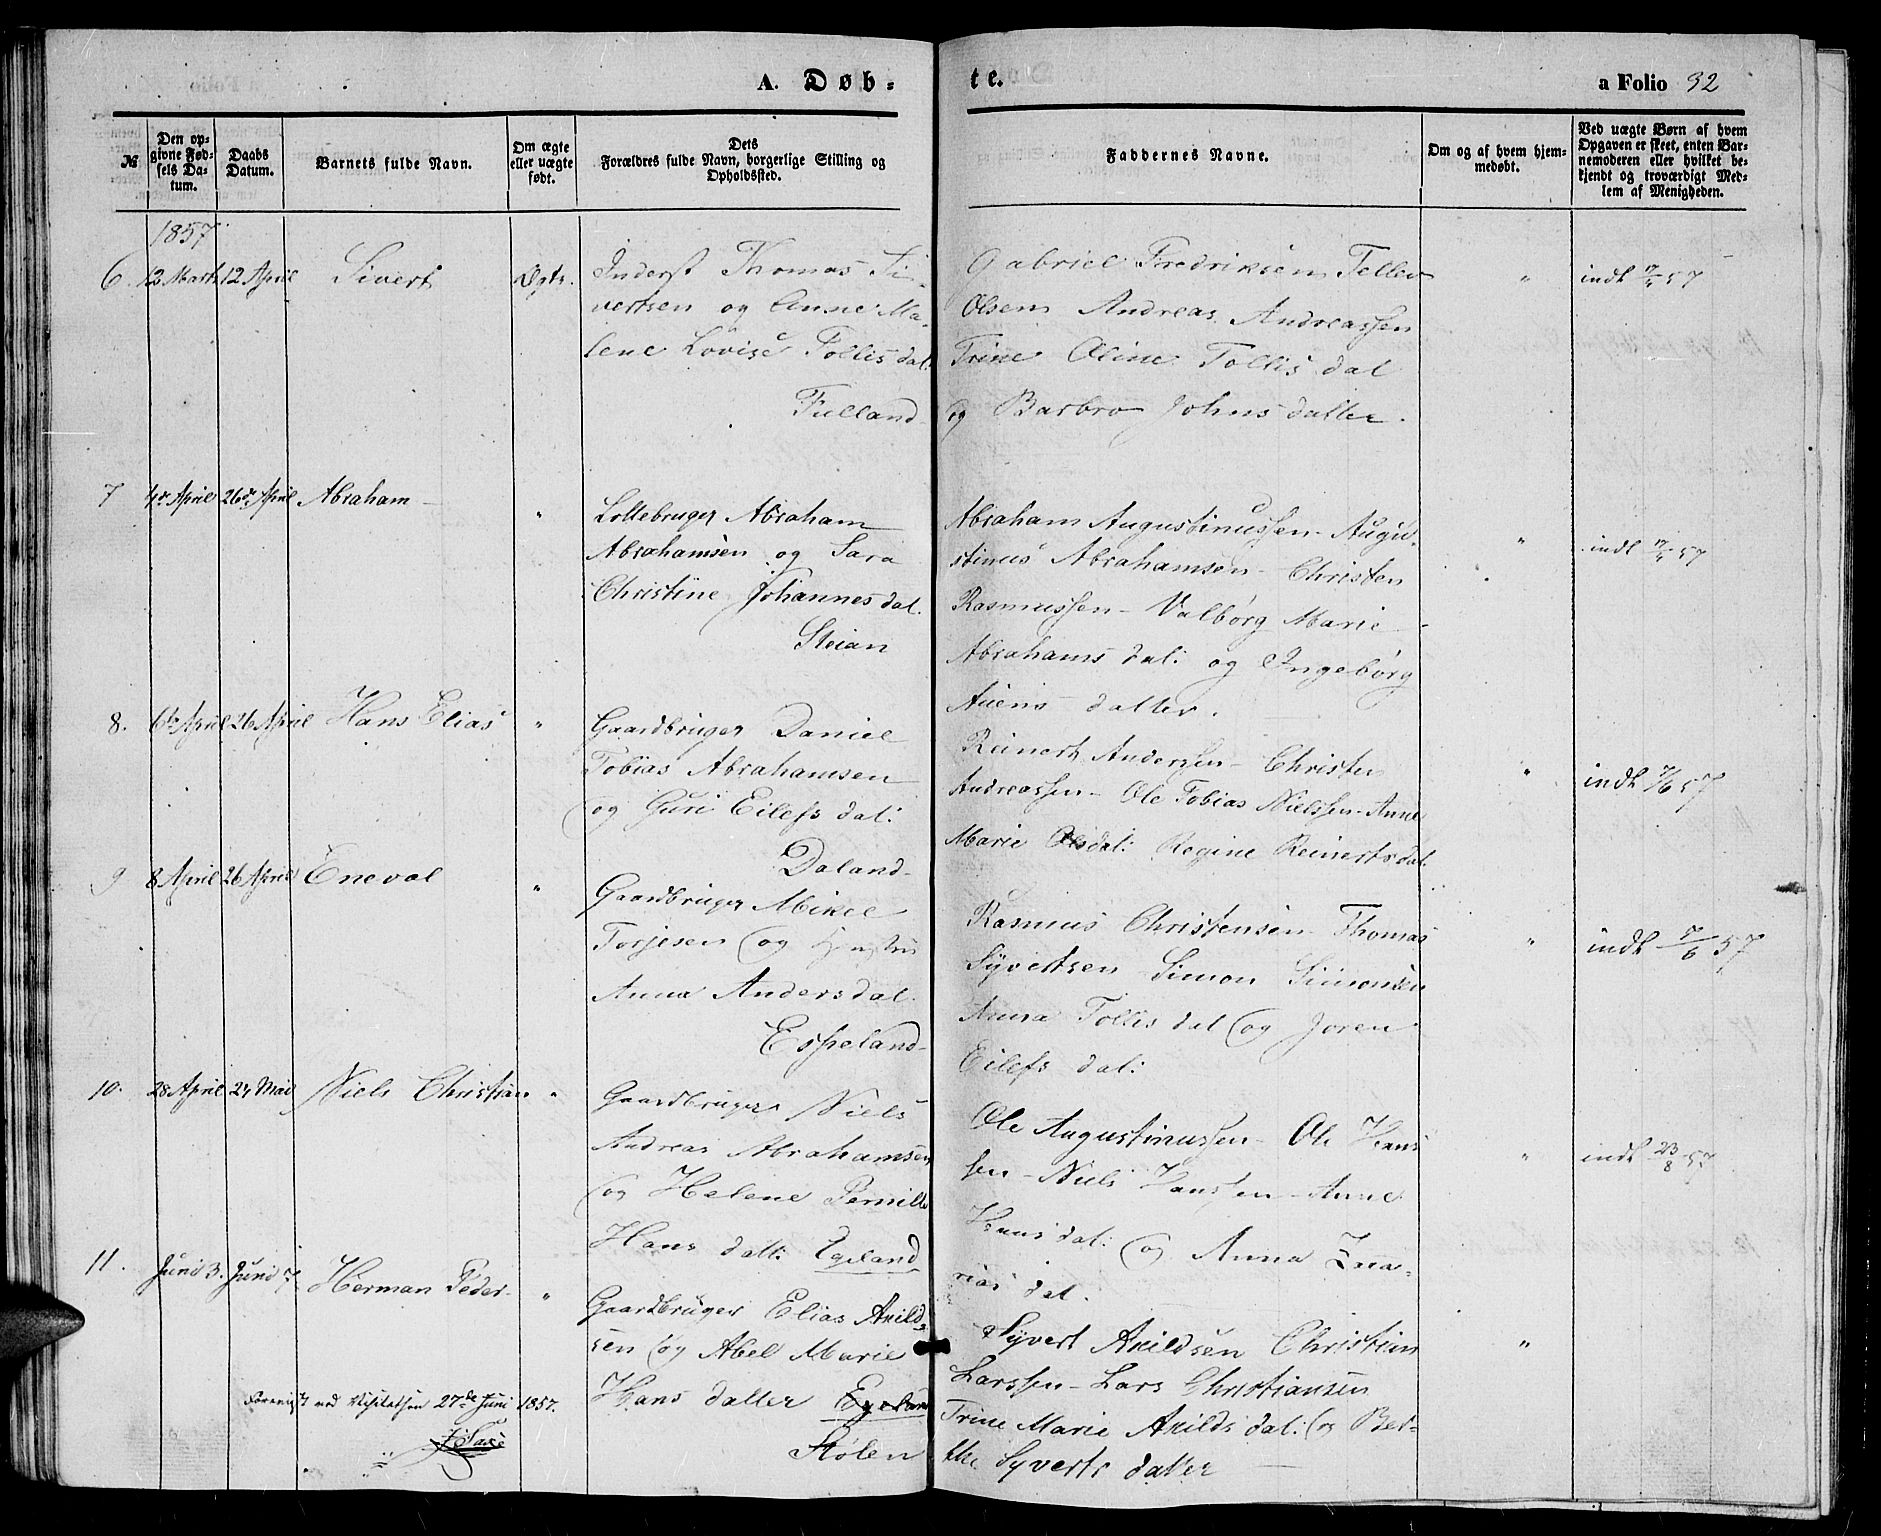 A. Døb-
te.
a Folio 32
№
Den op-
givne Fød-
sels Da-
tum.
Daabs
Datum.
Barnets fulde Navn.
Om ægte
eller uægte
født.
Dets
Forældres fulde Navn, borgerlige Stilling og
Opholdssted.
Faddernes Navne.
Om og af hvem hjem-
medøbt.
Ved uægte Børn af hvem
Opgaven er skeet, enten Bar-
nemoderen eller hvilket be-
kjendt og troværdigt Med-
lem af Menigheden.
1857
6. 12 Marts 12 April Sivert Ægte.
Inderst Thomas Si-
vertsen og Anne Ma-
lene Lovise Tollis dal:
Fulland
Gabriel Fredriksen Tellev
Olsen Andreas Andreassen
Trine Oline Tollis dal
og Barbro Johns datter.
" indt 17/5 57
7 4de April 26de April Abraham "
Lottebruger Abraham
Abrahamsen og Sara
Christine Johannes dal.
Steian
Abraham Augustinussen - Augu-
stinus Abrahamsen - Christen
Rasmussen - Valborg Marie
Abrahams dal: og Ingeborg
Auens datter.
" indt 17/5 57
8. 6te April 26 April Hans Elias "
Gaardbruger Daniel
Tobias Abrahamsen
og Guri Eilefs dal:
Daland
Reinert Andersen - Christen
Andreassen - Ole Tobias Nielssen - Anne
Marie Olsdal: Regine Reinertsdal.
" indt 7/6 57
9 8 April 26 April Eneval "
Gaardbruger Mikel
Torjesen og Hustru
Anna Andersdal.
Espeland
Rasmus Christensen - Thomas
Syvertsen - Simon Simonsen
Anna Tollis dal og Joren
Eilefs dal:
" indt 7/6 57
10. 28 April 24 Mai Niels Christian "
Gaardbruger Niels
Andreas Abrahamsen
og Helene Pernille
Hans datt: Egeland
Ole Augustinussen - Ole Hans
sen - Niels Hanssen - Anne
Hans dal: og Anna Zaca-
rias dal.
" indt 23/8 57
11. Juni 3. Juni 7. Herman Peder "
Gaardbruger Elias Arild-
sen og Abel Marie
Hans datter Egeland
Stølen
Syvert Arildsen Christian
Larssen - Lars Christiansen
Trine Marie Arilds dal: og Ber-
the Syverts datter
"
Foreviist ved Visitatsen 27de Juni 1857.